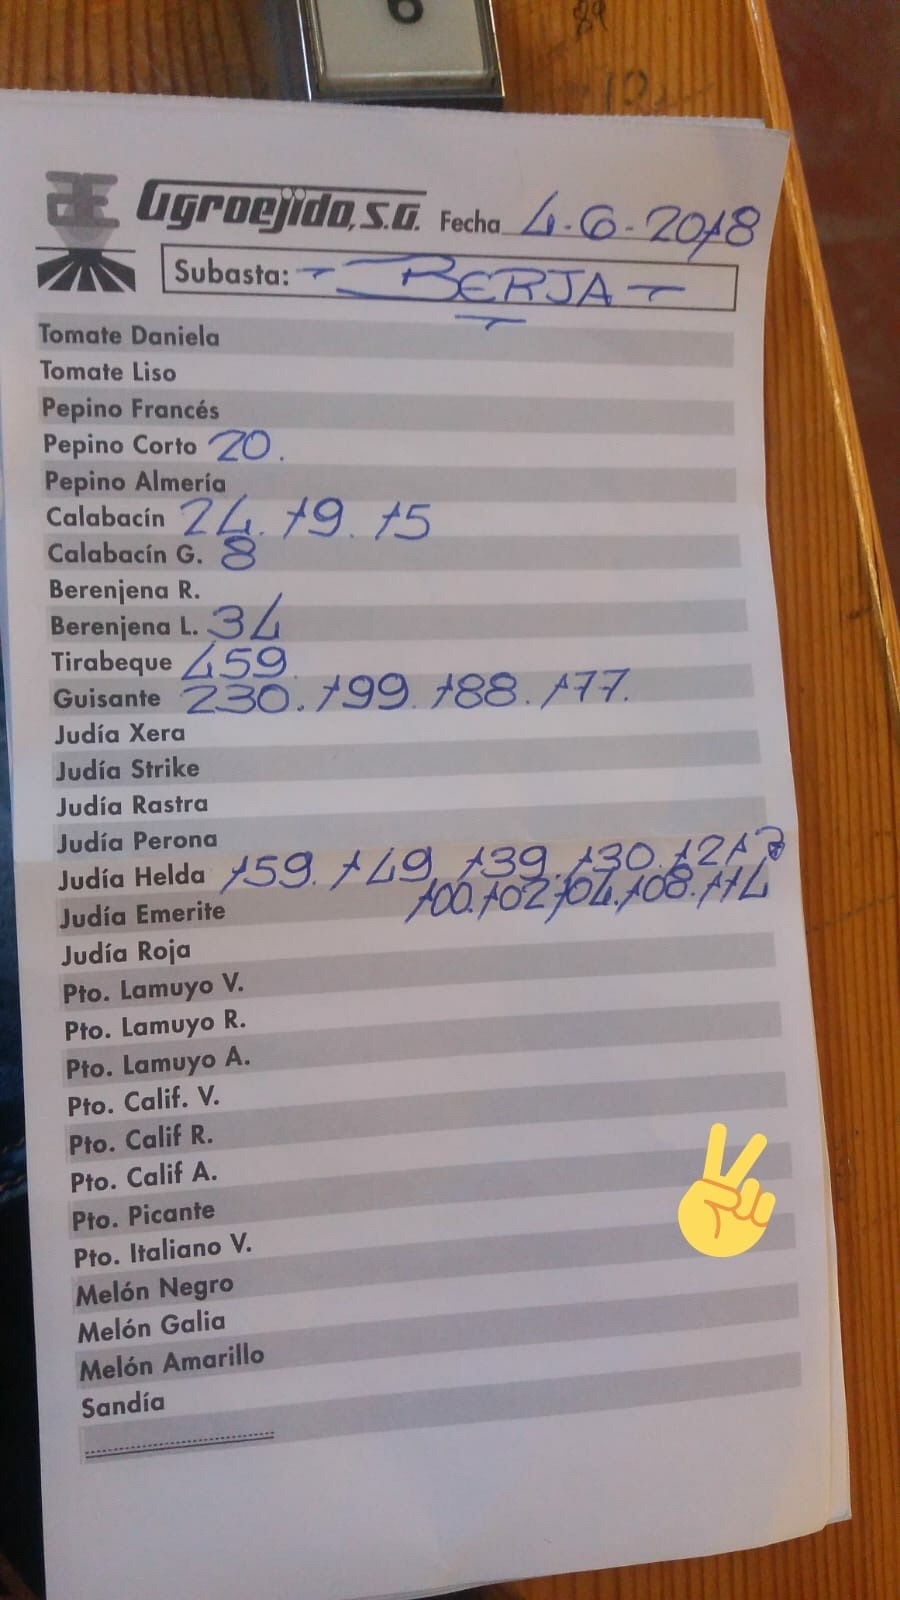 6
89
Agroejido, S.A. Fecha 4-6-2018
Subasta: - BERJA -
Tomate Daniela
Tomate Liso
Pepino Francés
Pepino Corto 20.
Pepino Almería
Calabacín 24. 19. 15
Calabacín G. 8
Berenjena R.
Berenjena L. 34
Tirabeque 459
Guisante 230. 199. 188. 177.
Judía Xera
Judía Strike
Judía Rastra
Judía Perona
Judía Helda 159. 149. 139. 130.
100. 102. 104. 108. 114
Judía Emerite
Judía Roja
Pto. Lamuyo V.
Pto. Lamuyo R.
Pto. Lamuyo A.
Pto. Calif. V.
Pto. Calif R.
Pto. Calif A.
Pto. Picante
Pto. Italiano V.
Melón Negro
Melón Galia
Melón Amarillo
Sandía